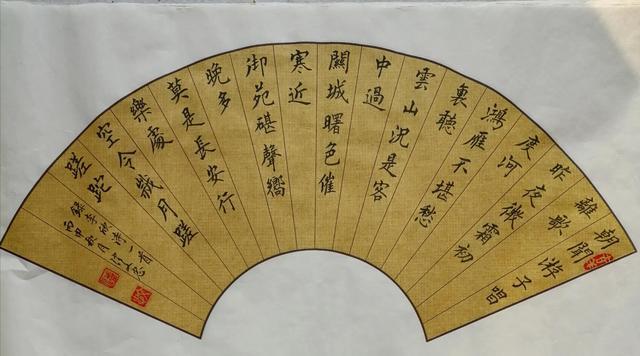 朝聞游子唱
離歌
昨夜微霜初
度河
鴻雁不堪愁
裏聽
雲山況是客
中過
關城曙色催
寒近
御苑碪聲嚮
晚多
莫是長安行
樂處
空令歲月蹉
蹉跎
錄李頎詩一首
丙申秋月